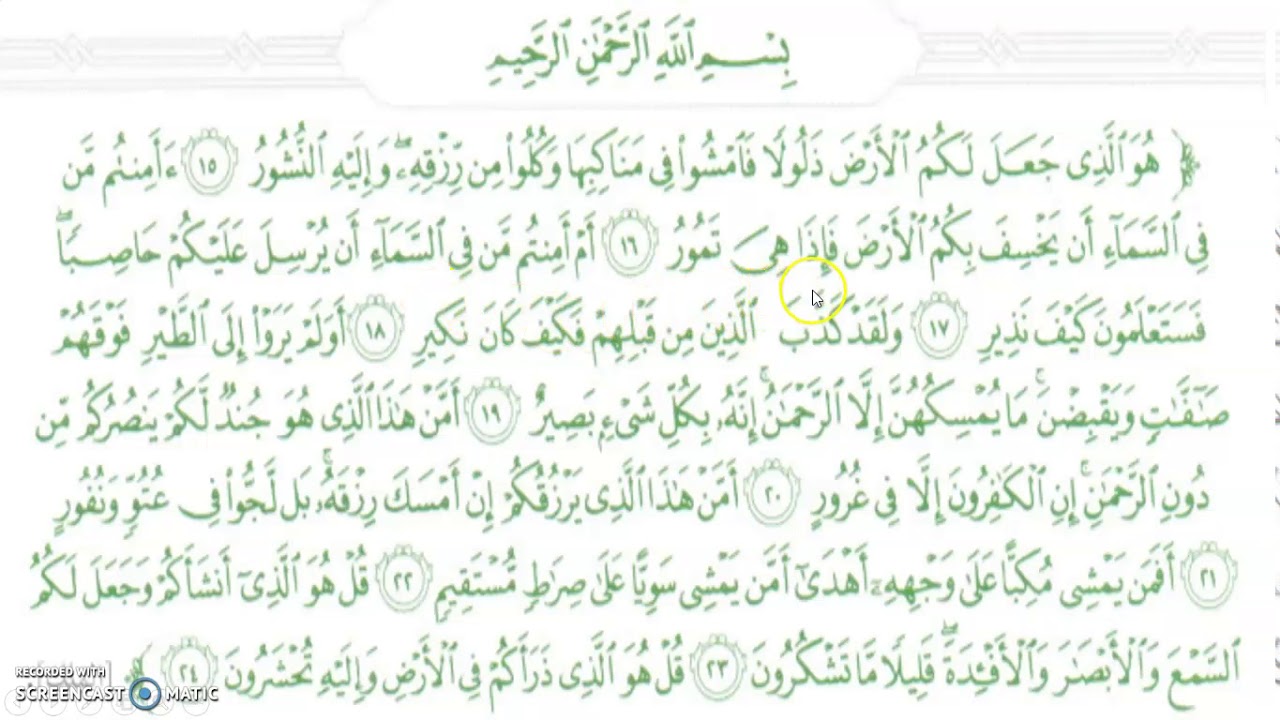 بِسْمِ ٱللَّهِ ٱلرَّحْمَٰنِ ٱلرَّحِيمِ
﴿ هُوَ ٱلَّذِى جَعَلَ لَكُمُ ٱلْأَرْضَ ذَلُولًا فَٱمْشُوا۟ فِى مَنَاكِبِهَا وَكُلُوا۟ مِن رِّزْقِهِۦ ۖ وَإِلَيْهِ ٱلنُّشُورُ ١٥ ءَأَمِنتُم مَّن
فِى ٱلسَّمَآءِ أَن يَخْسِفَ بِكُمُ ٱلْأَرْضَ فَإِذَا هِىَ تَمُورُ ١٦ أَمْ أَمِنتُم مَّن فِى ٱلسَّمَآءِ أَن يُرْسِلَ عَلَيْكُمْ حَاصِبًا ۖ
فَسَتَعْلَمُونَ كَيْفَ نَذِيرِ ١٧ وَلَقَدْ كَذَّبَ ٱلَّذِينَ مِن قَبْلِهِمْ فَكَيْفَ كَانَ نَكِيرِ ١٨ أَوَلَمْ يَرَوْا۟ إِلَى ٱلطَّيْرِ فَوْقَهُمْ
صَٰٓفَّٰتٍ وَيَقْبِضْنَ ۚ مَا يُمْسِكُهُنَّ إِلَّا ٱلرَّحْمَٰنُ ۚ إِنَّهُۥ بِكُلِّ شَىْءٍۭ بَصِيرٌ ١٩ أَمَّنْ هَٰذَا ٱلَّذِى هُوَ جُندٌ لَّكُمْ يَنصُرُكُم مِّن
دُونِ ٱلرَّحْمَٰنِ ۚ إِنِ ٱلْكَٰفِرُونَ إِلَّا فِى غُرُورٍ ٢٠ أَمَّنْ هَٰذَا ٱلَّذِى يَرْزُقُكُمْ إِنْ أَمْسَكَ رِزْقَهُۥ ۚ بَل لَّجُّوا۟ فِى عُتُوٍّ وَنُفُورٍ
٢١ أَفَمَن يَمْشِى مُكِبًّا عَلَىٰ وَجْهِهِۦٓ أَهْدَىٰٓ أَمَّن يَمْشِى سَوِيًّا عَلَىٰ صِرَٰطٍ مُّسْتَقِيمٍ ٢٢ قُلْ هُوَ ٱلَّذِىٓ أَنشَأَكُمْ وَجَعَلَ لَكُمُ
ٱلسَّمْعَ وَٱلْأَبْصَٰرَ وَٱلْأَفْـِٔدَةَ ۖ قَلِيلًا مَّا تَشْكُرُونَ ٢٣ قُلْ هُوَ ٱلَّذِى ذَرَأَكُمْ فِى ٱلْأَرْضِ وَإِلَيْهِ تُحْشَرُونَ ٢٤ ﴾
RECORDED WITH
SCREENCAST MATIC